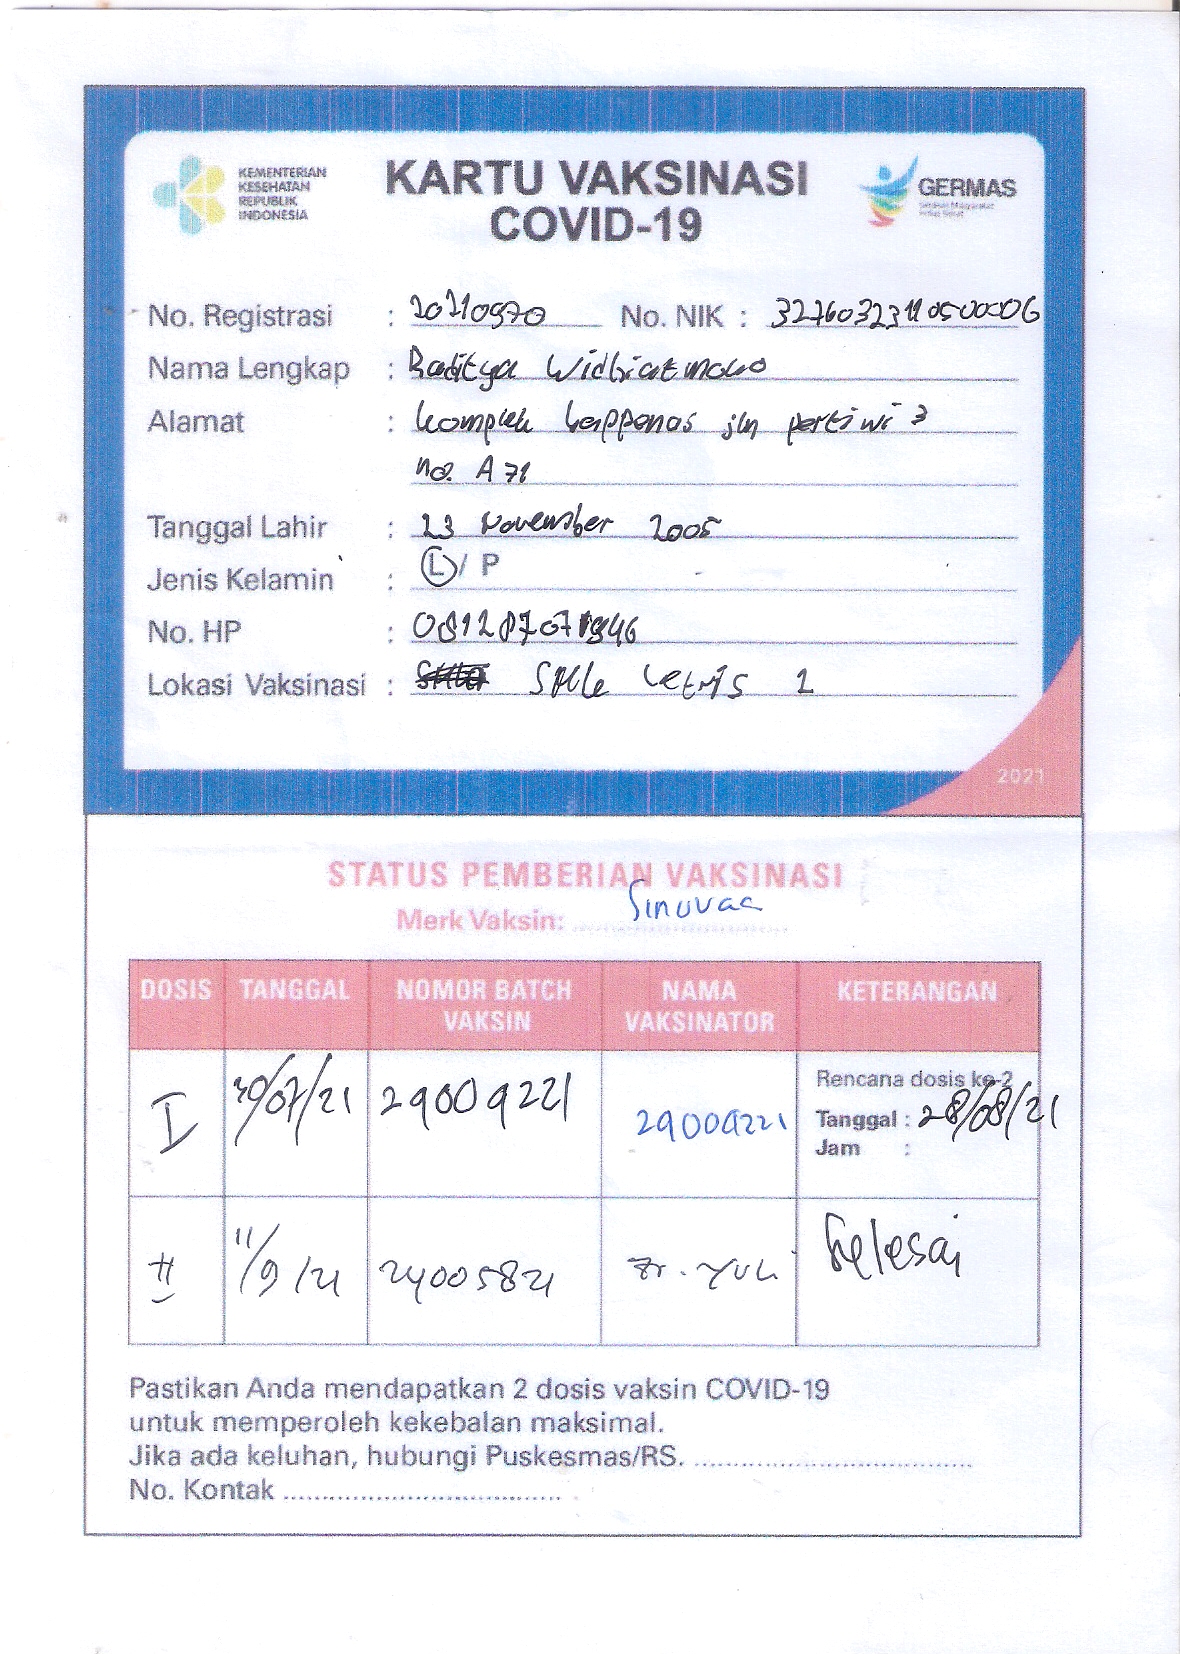 KEMENTERIAN
KESEHATAN
REPUBLIK
INDONESIA
KARTU VAKSINASI
COVID-19
GERMAS
Gerakan Masyarakat
Hidup Sehat
No. Registrasi : 20210970 No. NIK : 3276032311050006
Nama Lengkap : Raditya Widhiatmoko
Alamat : komplek bappenas jln pertiwi 3
no. A 71
Tanggal Lahir : 23 November 2005
Jenis Kelamin : L / P
No. HP :
Lokasi Vaksinasi : SMK Letris 2
2021
STATUS PEMBERIAN VAKSINASI
Merk Vaksin: Sinovac
DOSIS TANGGAL NOMOR BATCH VAKSIN NAMA VAKSINATOR KETERANGAN
I 30/07/21 29009221 29009221 Rencana dosis ke-2
Tanggal : 28/08/21
Jam :
II 11/9/21 24005821 Selesai
Pastikan Anda mendapatkan 2 dosis vaksin COVID-19
untuk memperoleh kekebalan maksimal.
Jika ada keluhan, hubungi Puskesmas/RS. ....................................
No. Kontak ....................................